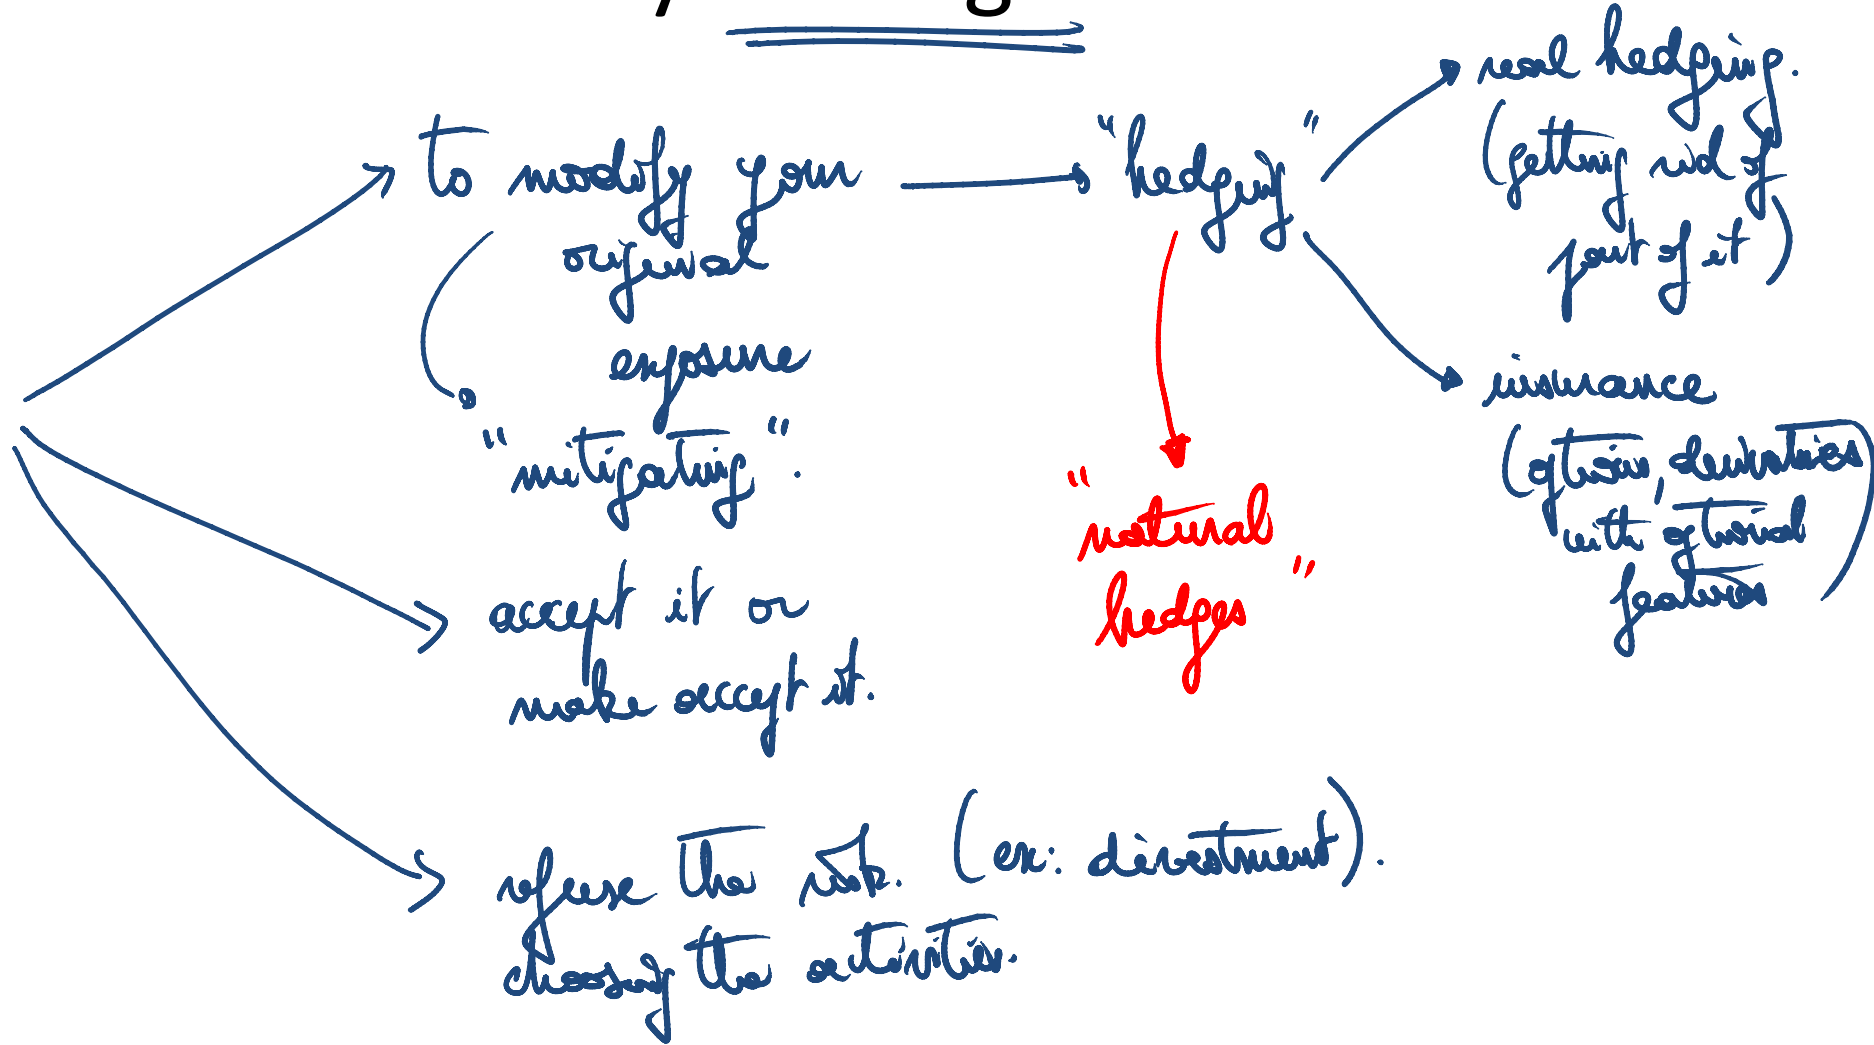 to modify your
original
exposure
"mitigating".
"hedging"
real hedging.
(getting rid of
part of it)
insurance
(options, derivatives
with optional
features)
"natural
hedges"
accept it or
make accept it.
refuse the risk. (ex: divestment).
choosing the activities.